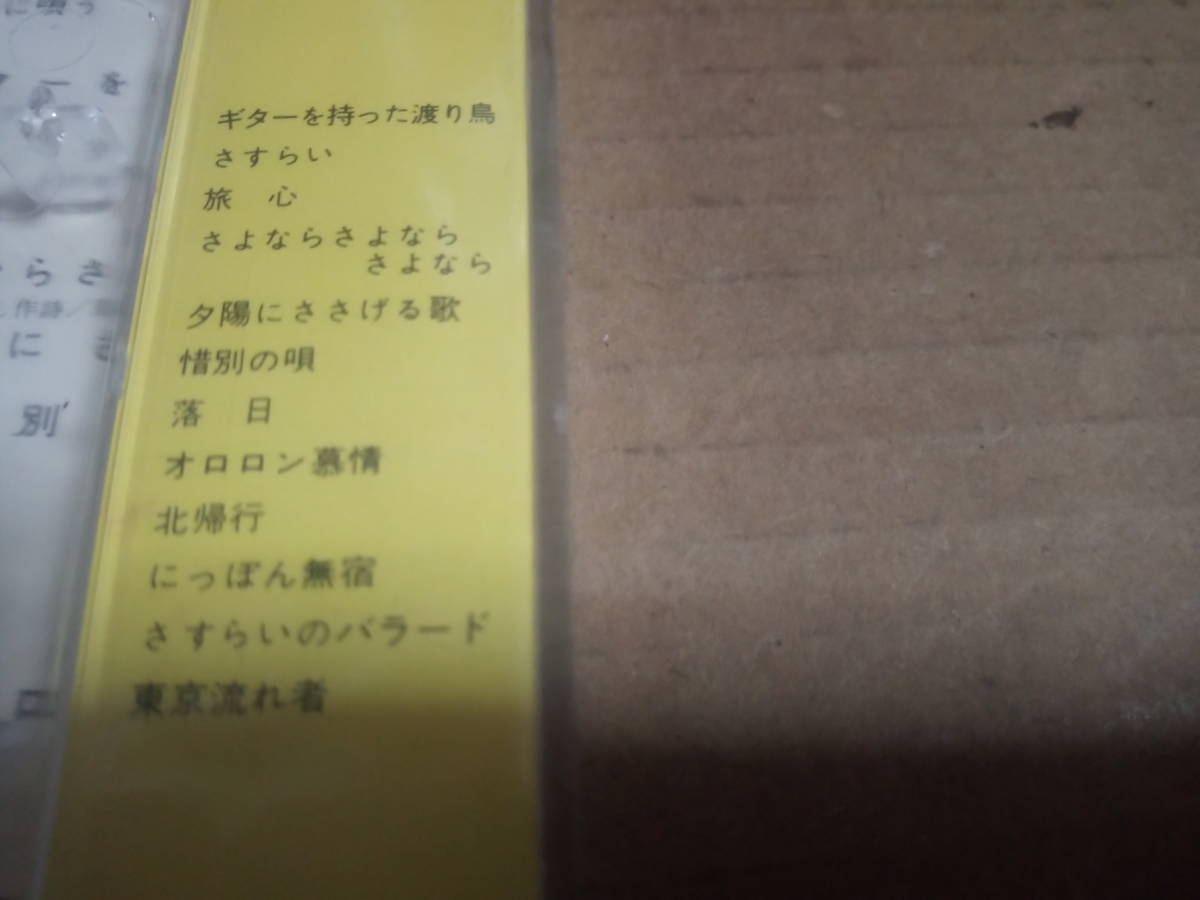 に唄う
ーを
ギターを持った渡り鳥
さすらい
旅 心
さよならさよなら
さよなら
らさ
作詩／
夕陽にささげる歌
に
惜別の唄
別
落 日
オロロン慕情
北帰行
にっぽん無宿
さすらいのバラード
東京流れ者
ロ